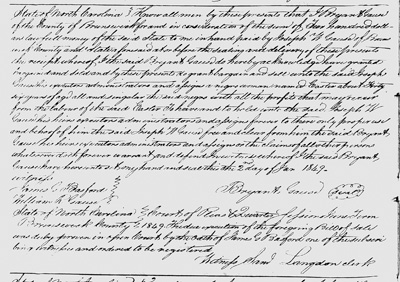 State of North Carolina } Know all men by these presents that I Bryant Gause
of the County of Brunswick for and in consideration of the sum of Four hundred Doll
ars lawful money of the said State to me in hand paid by Joseph W Gause of Bruns
wick County and State foresaid at or before the sealing and delivery of these presents
the receipt whereof I the said Bryant Gause do hereby acknowledge have granted
bargained and sold and by these presents do grant bargain and sell unto the said Joseph
Gause his executors administrators and assigns a negro woman named Easter about
years of age To have and to hold unto the said Joseph W
Gause his heirs executors administrators and assigns forever to there only proper use
and behoof of him the said Joseph W Gause free and clear from him the said Bryant
Gause his heirs executors administrators and assigns or the claims of all other persons
whatsoever shall forever warrant and defend In witness whereof I the said Bryant
Gause have hereunto set my hand and seal this the 2 day of Jan 1849
witness
James G Bradford
William R Gause
Bryant Gause Seal
State of North Carolina } Court of Pleas & Quarter Sessions June Term
Brunswick County } 1849. The due execution of the foregoing Bill of sale
was duly proven in open Court by the oath of James G Bradford one of the subscri
bing witnesses and ordered to be registered
Witness Saml Langdon clerk